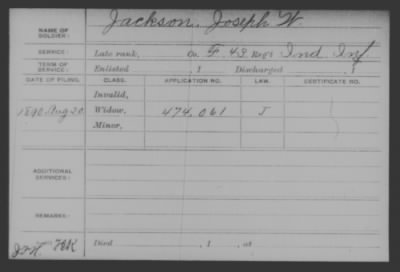 NAME OF SOLDIER: Jackson, Joseph W.
SERVICE: Late rank, Co. F. 43 Reg't Ind Inf
TERM OF SERVICE: Enlisted , 1 Discharged , 1
DATE OF FILING. CLASS. APPLICATION NO. LAW. CERTIFICATE NO.
Invalid,
1890 Aug 20 Widow, 474.061 J
Minor,
ADDITIONAL SERVICES:
REMARKS:
Died , 1 , at